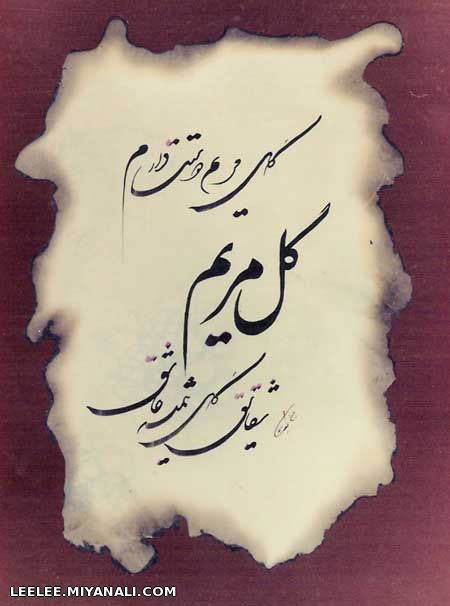 گلهای مریم دوست دارم
گل مریم
شقایق گلهای همیشه عاشق
LEELEE.MIYANALI.COM